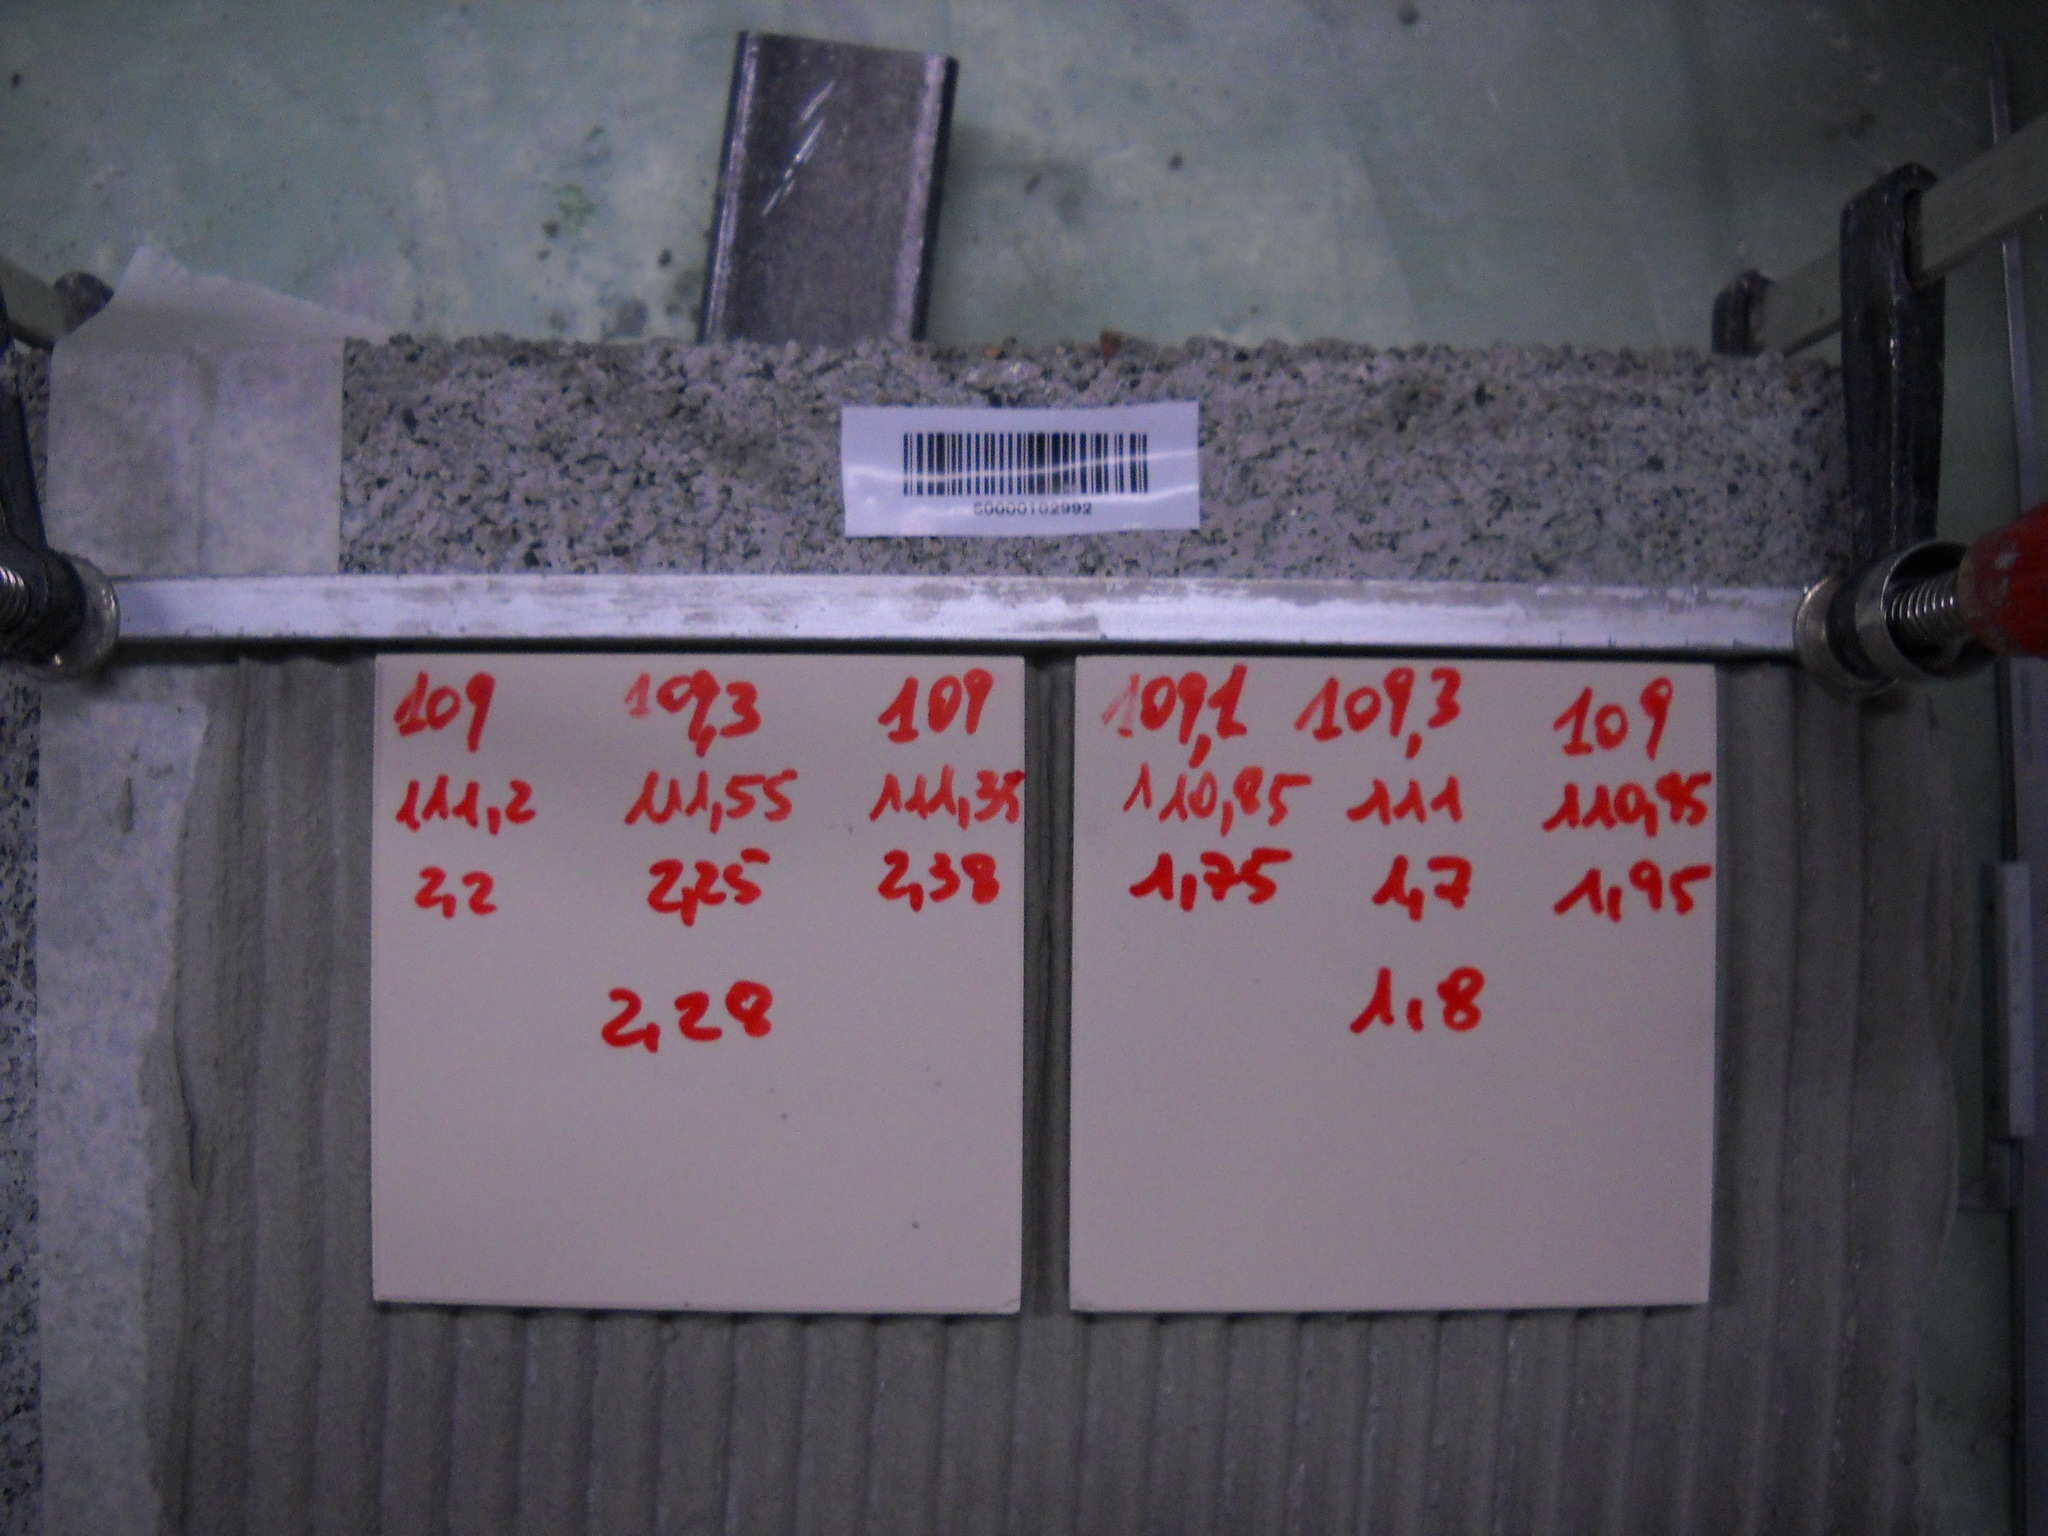 60000102992
109 109,3 109
111,2 111,55 111,35
2,2 2,25 2,38
2,28
109,1 109,3 109
110,85 111 110,95
1,75 1,7 1,95
1,8